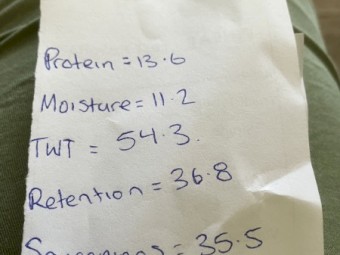 Protein = 13.6
Moisture = 11.2
TWT = 54.3.
Retention = 36.8
Screenings = 35.5